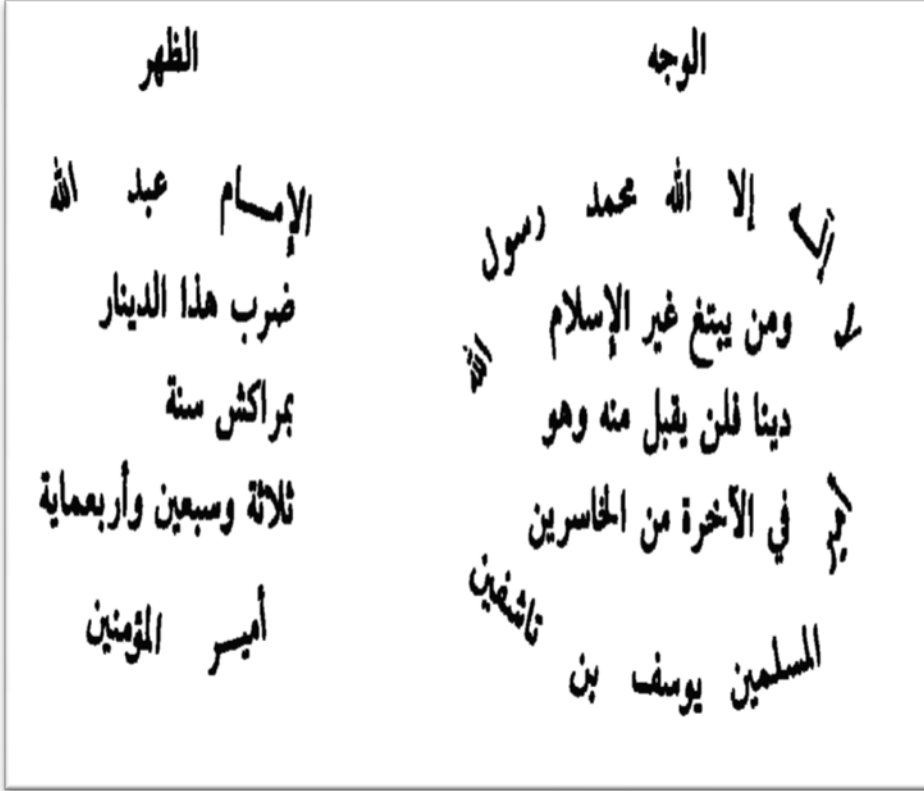 الوجه
لا إلـه إلا الله محمد رسول الله
ومن يبتغ غير الإسلام
دينا فلن يقبل منه وهو
في الآخرة من الخاسرين
أمير المسلمين يوسف بن تاشفين
الظهر
الإمـــام عبد الله
ضرب هذا الدينار
بمراكش سنة
ثلاثة وسبعين وأربعماية
أميـــر المؤمنين